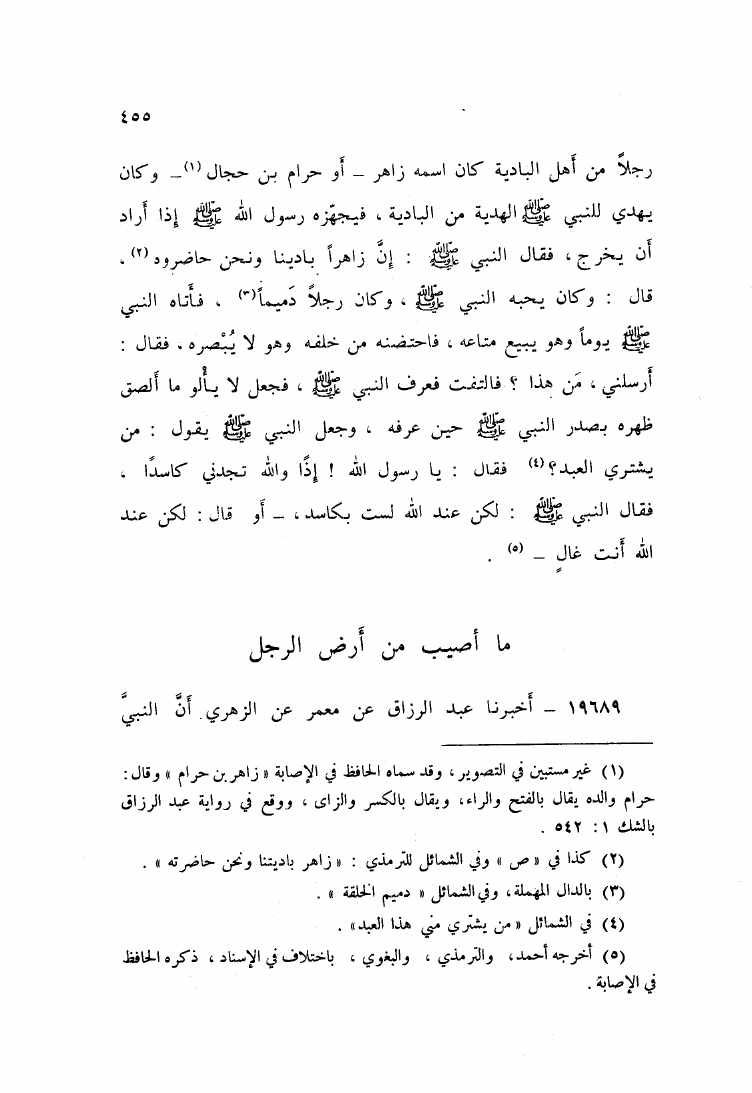 ٤٥٥
رجلاً من أهل البادية كان اسمه زاهر – أو حرام بن حجال (١) – وكان
يهدي للنبي ﷺ الهدية من البادية ، فيجهّزه رسول الله ﷺ إذا أراد
أن يخرج ، فقال النبي ﷺ : إنَّ زاهراً بادينا ونحن حاضروه (٢) .
قال : وكان يحبه النبي ﷺ ، وكان رجلاً دَميماً (٣) ، فأتاه النبي
ﷺ يوماً وهو يبيع متاعه ، فاحتضنه من خلفه وهو لا يُبْصره ، فقال :
أرسلني ، مَن هذا ؟ فالتفت فعرف النبي ﷺ ، فجعل لا يألو ما ألصق
ظهره بصدر النبي ﷺ حين عرفه ، وجعل النبي ﷺ يقول : من
يشتري العبد؟ (٤) فقال : يا رسول الله ! إذًا والله تجدني كاسدًا ،
فقال النبي ﷺ : لكن عند الله لست بكاسد ، – أو قال : لكن عند
الله أنت غالٍ – (٥) .
ما أصيب من أرض الرجل
١٩٦٨٩ – أخبرنا عبد الرزاق عن معمر عن الزهري أنَّ النبيَّ
(١) غير مستبين في التصوير ، وقد سماه الحافظ في الإصابة « زاهر بن حرام » وقال :
حرام والده يقال بالفتح والراء ، ويقال بالكسر والزاى ، ووقع في رواية عبد الرزاق
بالشك ١ : ٥٤٢ .
(٢) كذا في « ص » وفي الشمائل للترمذي : « زاهر باديتنا ونحن حاضرته » .
(٣) بالدال المهملة ، وفي الشمائل « دميم الخلقة » .
(٤) في الشمائل « من يشتري مني هذا العبد» .
(٥) أخرجه أحمد ، والترمذي ، والبغوي ، باختلاف في الإسناد ، ذكره الحافظ
في الإصابة .